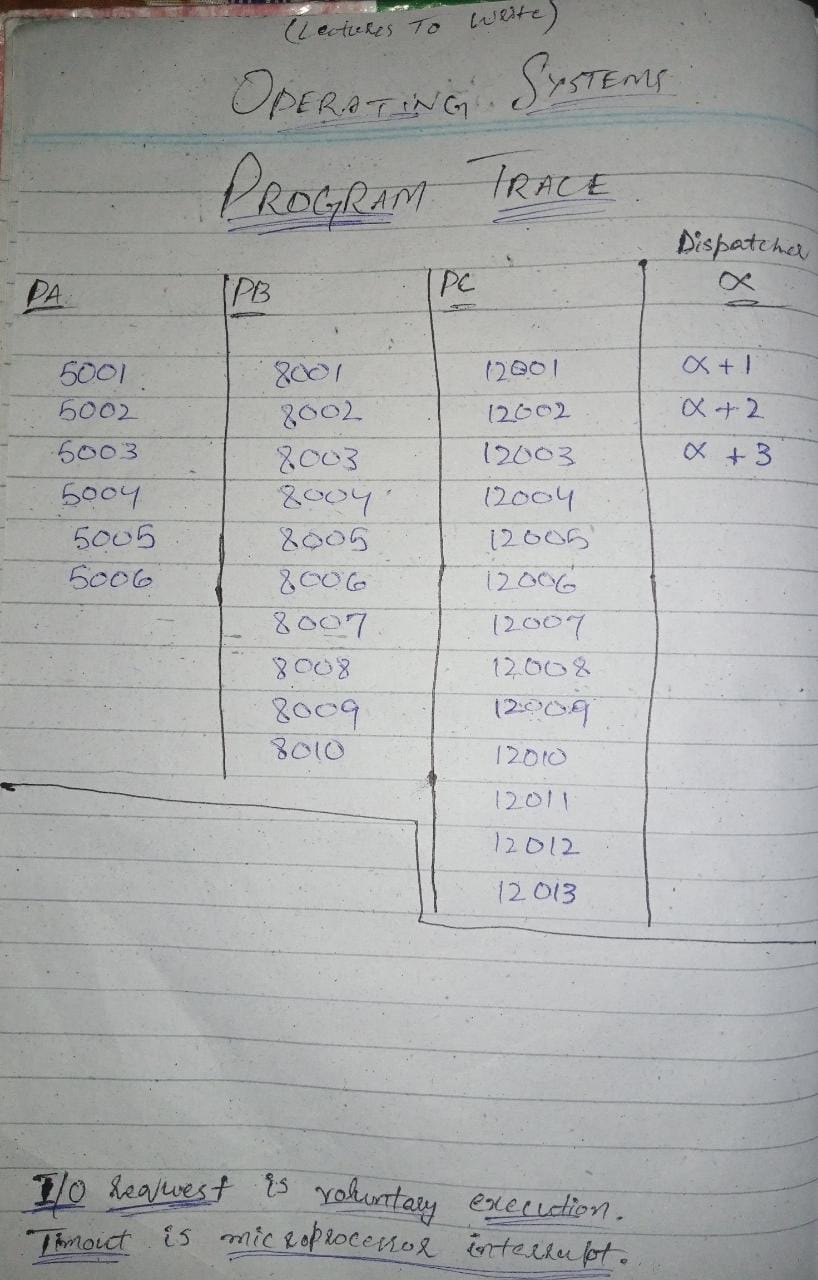 (Lectures To Write)
OPERATING SYSTEMS
PROGRAM TRACE
Dispatcher
PA PB PC α
5001 8001 12001 α + 1
5002 8002 12002 α + 2
5003 8003 12003 α + 3
5004 8004 12004
5005 8005 12005
5006 8006 12006
8007 12007
8008 12008
8009 12009
8010 12010
12011
12012
12013
I/O Request is voluntary execution.
Timout is microprocessor interrupt.